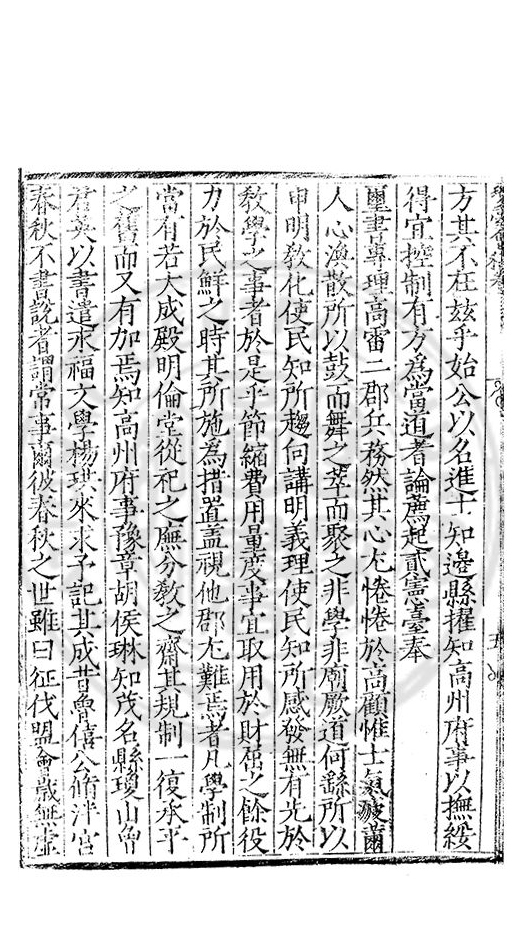 方其不在茲乎始公以名進士知邊縣擢知高州府事以撫綏
得宜控制有方為當道者論薦起貳憲臺奉
璽書專理高雷二郡兵務然其心尤惓惓於高顧惟士氣疲薾
人心渙散所以鼓而舞之萃而聚之非學非廟厥道何繇所以
申明教化使民知所趨向講明義理使民知所感發無有先於
教學之事者於是乎節縮費用量度事宜取用於財屈之餘役
力於民鮮之時其所施為措置蓋視他郡尤難焉者凡學制所
當有若大成殿明倫堂從祀之廡分教之齋其規制一復承平
之舊而又有加焉知高州府事豫章胡侯琳知茂名縣瓊山曾
君英以書遣永福文學楊琪來求予記其成昔魯僖公脩泮宮
春秋不書說者謂常事爾彼春秋之世雖曰征伐盟會歲無虛